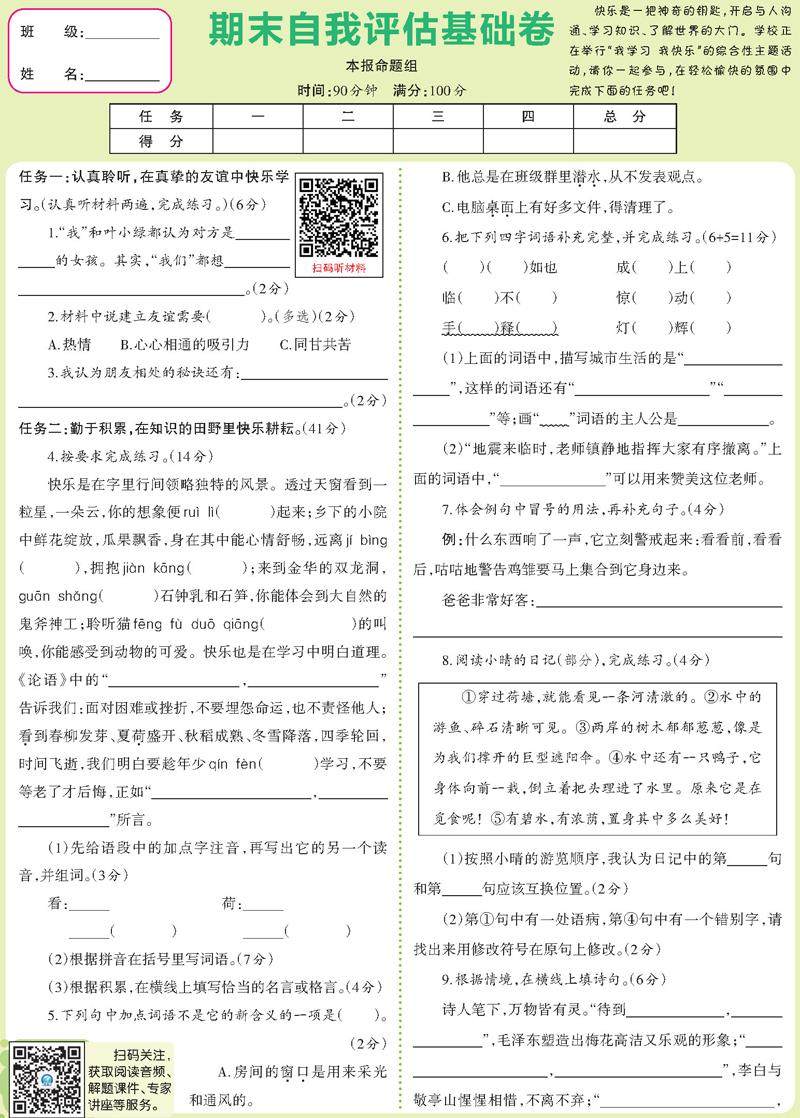 班　　级:
姓　　名:
期末自我评估基础卷
本报命题组
时间:90分钟　满分:100分
快乐是一把神奇的钥匙,开启与人沟
通、学习知识、了解世界的大门。学校正
在举行“我学习 我快乐”的综合性主题活
动,请你一起参与,在轻松愉快的氛围中
完成下面的任务吧!
任　务　一　二　三　四　总　分
得　分
任务一:认真聆听,在真挚的友谊中快乐学
习。(认真听材料两遍,完成练习。)(6分)
扫码听材料
1.“我”和叶小绿都认为对方是________
_____的女孩。其实,“我们”都想________
________________。(2分)
2.材料中说建立友谊需要(　　　)。(多选)(2分)
A.热情　　B.心心相通的吸引力　　C.同甘共苦
3.我认为朋友相处的秘诀还有:________________
________________。(2分)
任务二:勤于积累,在知识的田野里快乐耕耘。(41分)
4.按要求完成练习。(14分)
快乐是在字里行间领略独特的风景。透过天窗看到一
粒星,一朵云,你的想象便ruì lì(　　　)起来;乡下的小院
中鲜花绽放,瓜果飘香,身在其中能心情舒畅,远离jí bìng
(　　　),拥抱jiàn kāng(　　　);来到金华的双龙洞,
guān shǎng(　　　)石钟乳和石笋,你能体会到大自然的
鬼斧神工;聆听猫fēng fù duō qiāng(　　　　　)的叫
唤,你能感受到动物的可爱。快乐也是在学习中明白道理。
《论语》中的“________________,________________”
告诉我们:面对困难或挫折,不要埋怨命运,也不责怪他人;
看到春柳发芽、夏荷盛开、秋稻成熟、冬雪降落,四季轮回,
时间飞逝,我们明白要趁年少qín fèn(　　　)学习,不要
等老了才后悔,正如“________________,________
________”所言。
(1)先给语段中的加点字注音,再写出它的另一个读
音,并组词。(3分)
看:______　　　　荷:______
______(　　　)　　______(　　　)
(2)根据拼音在括号里写词语。(7分)
(3)根据积累,在横线上填写恰当的名言或格言。(4分)
5.下列句中加点词语不是它的新含义的一项是(　　)。
(2分)
A.房间的窗口是用来采光
和通风的。
扫码关注,
获取阅读音频、
解题课件、专家
讲座等服务。
B.他总是在班级群里潜水,从不发表观点。
C.电脑桌面上有好多文件,得清理了。
6.把下列四字词语补充完整,并完成练习。(6+5=11分)
(　　)(　　)如也　　成(　　)上(　　)
临(　　)不(　　)　　惊(　　)动(　　)
手(　　)释(　　)　　灯(　　)辉(　　)
(1)上面的词语中,描写城市生活的是“________
_____”,这样的词语还有“________________”“________
________”等;画“____”词语的主人公是____________。
(2)“地震来临时,老师镇静地指挥大家有序撤离。”上
面的词语中,“______________”可以用来赞美这位老师。
7.体会例句中冒号的用法,再补充句子。(4分)
例:什么东西响了一声,它立刻警戒起来:看看前,看看
后,咕咕地警告鸡雏要马上集合到它身边来。
爸爸非常好客:________________________________
________________________________
8.阅读小晴的日记(部分),完成练习。(4分)
①穿过荷塘,就能看见一条河清澈的。②水中的
游鱼、碎石清晰可见。③两岸的树木郁郁葱葱,像是
为我们撑开的巨型遮阳伞。④水中还有一只鸭子,它
身体向前一栽,倒立着把头理进了水里。原来它是在
觅食呢!⑤有碧水,有浓荫,置身其中多么美好!
(1)按照小晴的游览顺序,我认为日记中的第_____句
和第_____句应该互换位置。(2分)
(2)第①句中有一处语病,第④句中有一个错别字,请
找出来用修改符号在原句上修改。(2分)
9.根据情境,在横线上填诗句。(6分)
诗人笔下,万物皆有灵。“待到____________,______
________”,毛泽东塑造出梅花高洁又乐观的形象;“_____
____________,________________”,李白与
敬亭山惺惺相惜,不离不弃;“________________,